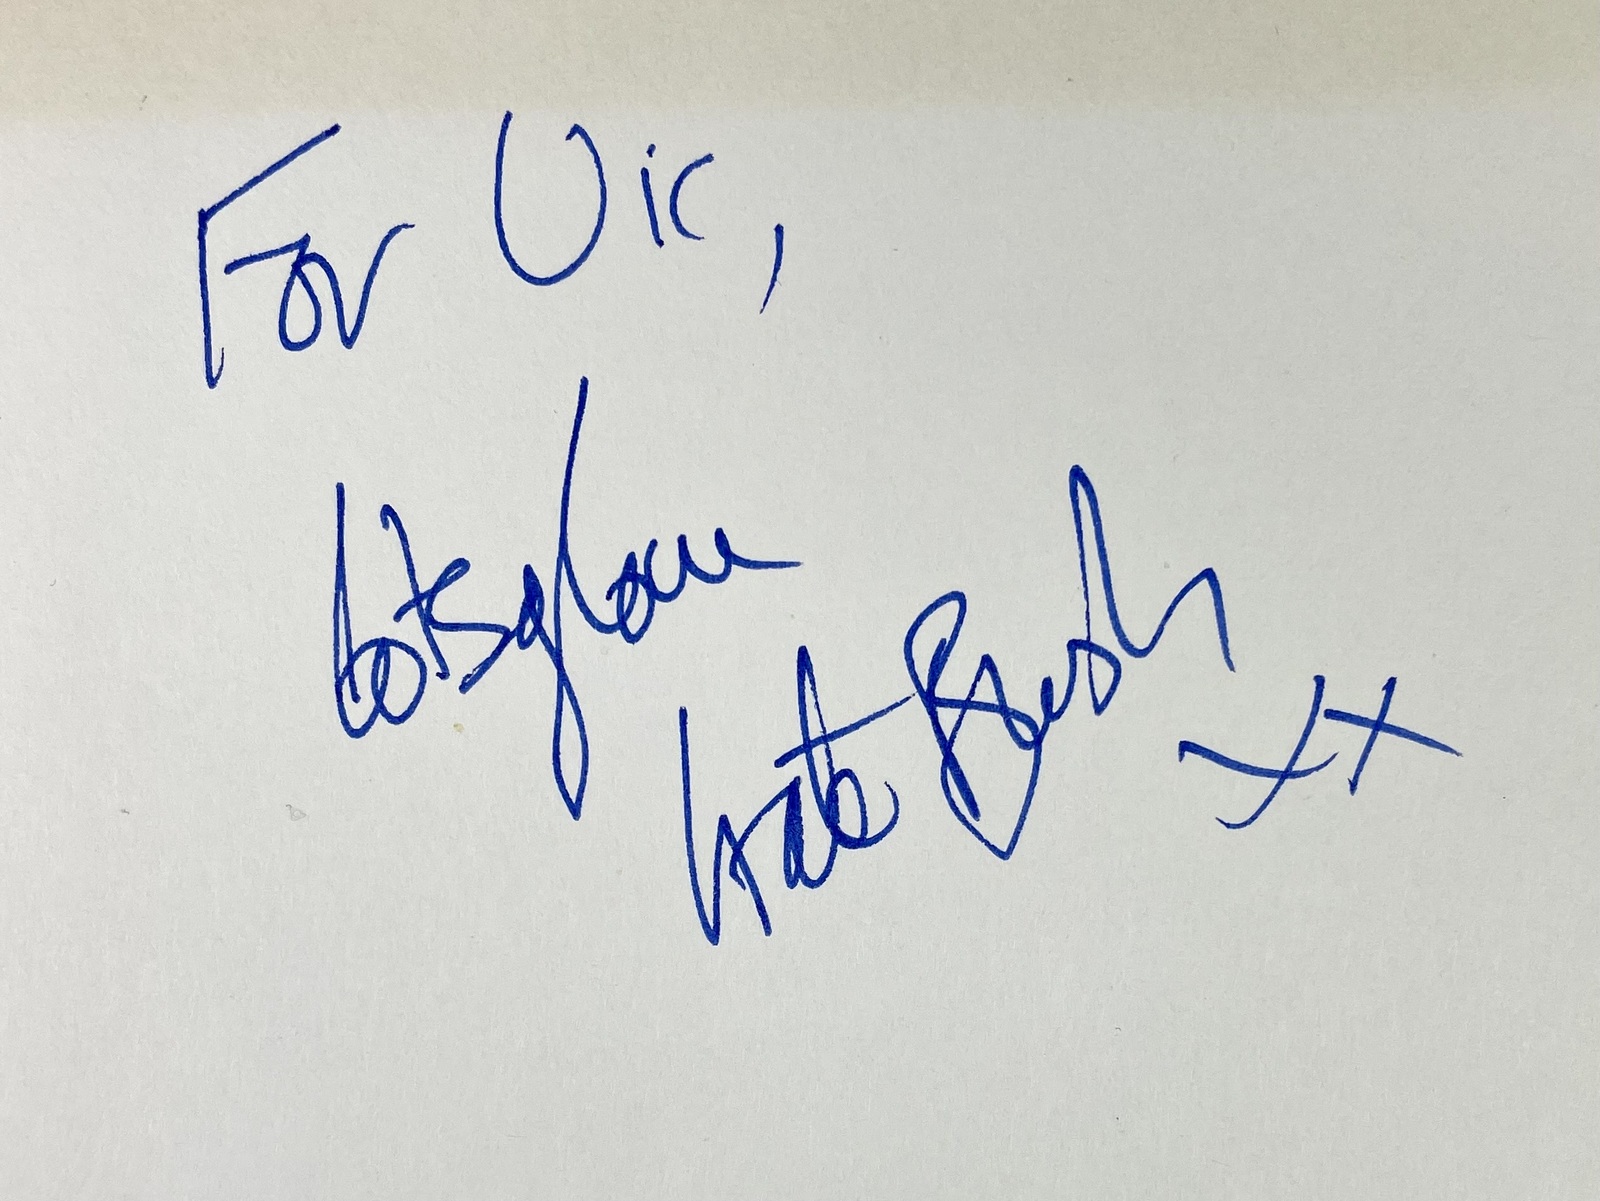 For Vic,
lots of love
Kate Bush
xx